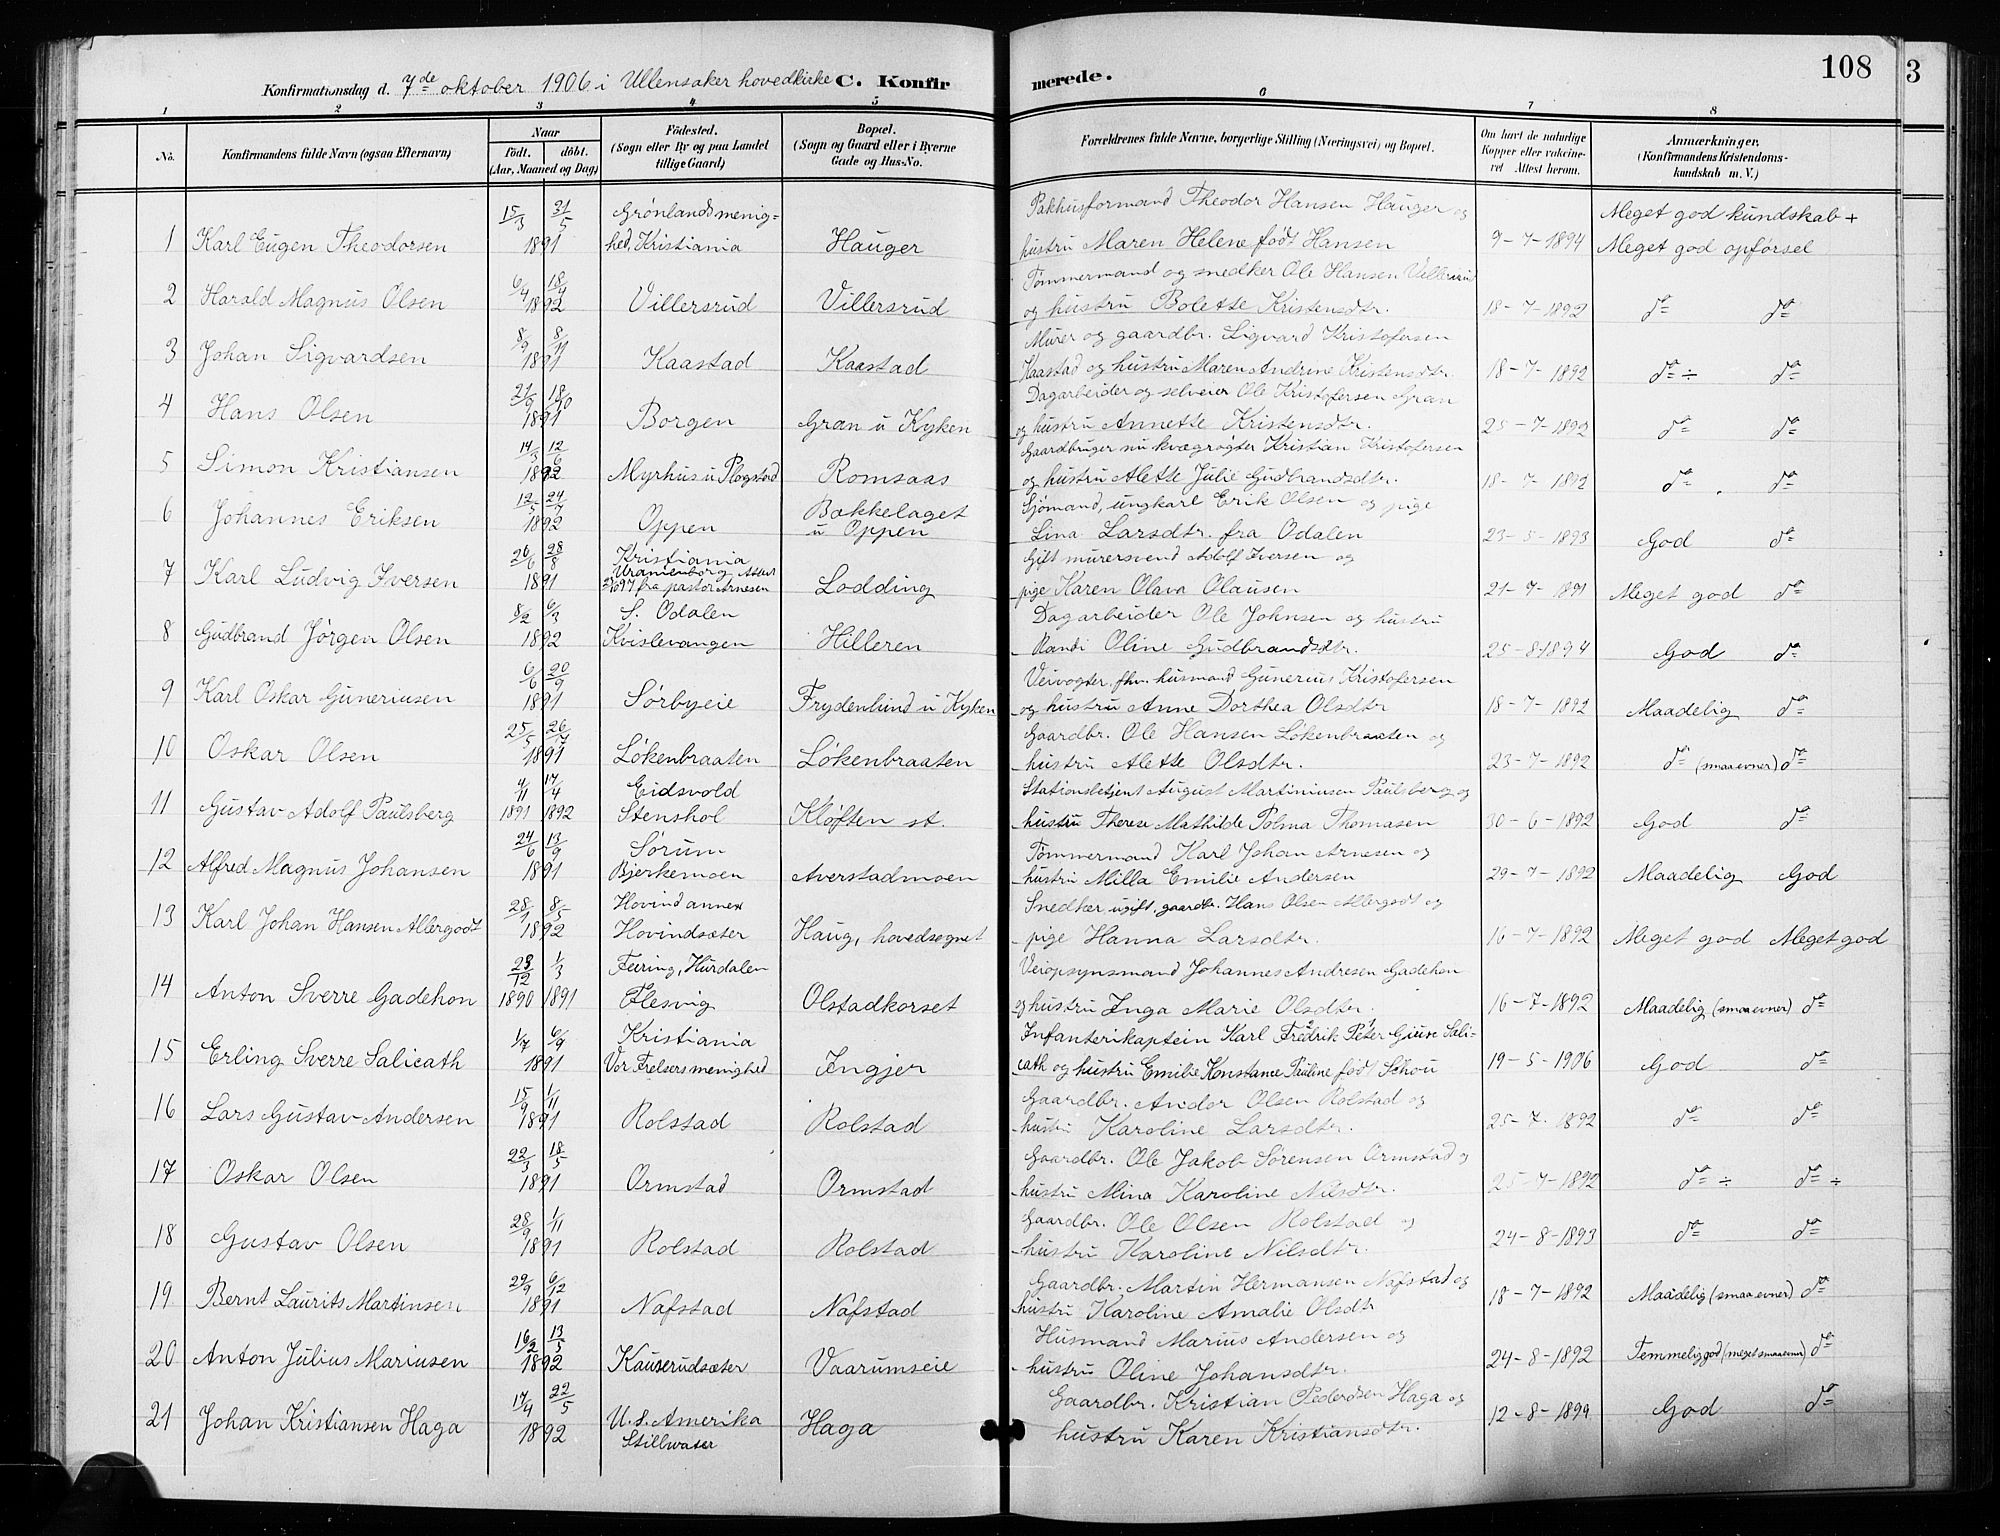 Konfirmationsdag d. 7de oktober 1906 i Ullensaker hovedkirke C. Konfirmerede. 108
3
1 2 3 4 5 6 7 8
No. Konfirmandens fulde Navn (ogsaa Efternavn) Naar Födt. döbt. (Aar, Maaned og Dag) Födested. (Sogn eller By og paa Landet tillige Gaard) Bopæl. (Sogn og Gaard eller i Byerne Gade og Hus-No. Forældrenes fulde Navne, borgerlige Stilling (Næringsvei) og Bopæl. Om havt de naturlige Kopper eller vakcineret Attest herom. Anmærkninger. (Konfirmandens Kristendomskundskab m. V.)
15/3 31/5 Grønlandsmenig= Pakhusformand Theodor Hansen Hauger og Meget god kundskab +
1 Karl Eugen Theodorsen 1891 hed, Kristiania Hauger hustru Maren Helene født Hansen 9-7-1894 Meget god opførsel
6/4 18/4 Tømmermand og snedker Ole Hansen Villersrud
2 Harald Magnus Olsen 1892 Villersrud Villersrud og hustru Bolette Kristensdtr. 18-7-1892 do do
8/9 8/11 Murer og gaardbr. Sigvard Kristofersen
3 Johan Sigvardsen 1891 Kaastad Kaastad Kaastad og hustru Maren Andrine Kristensdtr. 18-7-1892 do ÷ do
21/9 18/10 Dagarbeider og selveier Ole Kristofersen Gran
4 Hans Olsen 1891 Borgen Gran u Kyken og hustru Annette Kristensdtr. 25-7-1892 do do
14/3 12/6 Gaardbruger nu kvægrøgter Kristian Kristofersen
5 Simon Kristiansen 1892 Myrhus u Plogstad Romsaas og hustru Alette Julie Gudbrandsdtr. 18-7-1892 do do
12/5 24/7 Bakkelaget Sjømand, ungkarl Erik Olsen og pige
6 Johannes Eriksen 1892 Oppen u Oppen Lina Larsdtr. fra Odalen 23-5-1893 God do
26/6 28/8 Kristiania Gift murersvend Adolf Iversen og
7 Karl Ludvig Iversen 1891 Uranienborg Attest fra pastor Arnesen Lodding pige Karen Olava Olausen 21-7-1891 Meget god do
8/2 6/3 S. Odalen Dagarbeider Ole Johnsen og hustru
8 Gudbrand Jørgen Olsen 1892 Kvislevangen Hilleren Randi Oline Gudbrandsdtr. 25-8-1894 God do
6/6 20/9 Veivogter, fhv. husmand Gunerius Kristofersen
9 Karl Oskar Guneriusen 1891 Sørbyeie Frydenlund u Kyken og hustru Anne Dorthea Olsdtr 18-7-1892 Maadelig do
25/5 26/7 Gaardbr. Ole Hansen Løkenbraaten og
10 Oskar Olsen 1891 Løkenbraaten Løkenbraaten hustru Alette Olsdtr. 23-7-1892 do (smaa evner) do
4/11 17/4 Eidsvold Stationsbetjent August Martiniusen Paulsberg og
11 Gustav Adolf Paulsberg 1891 1892 Stenshol Kløften st. hustru Therese Mathilde Polma Thomasen 30-6-1892 God do
24/6 13/9 Sørum Tømmermand Karl Johan Arnesen og
12 Alfred Magnus Johansen 1891 Bjerkemoen Averstadmoen hustru Milla Emilie Andersen 29-7-1892 Maadelig God
28/1 8/5 Hovind annex Snedker ugift, gaardbr. Hans Olsen Allergodt og
13 Karl Johan Hansen Allergodt 1892 Hovindsæter Haug, hovedsognet pige Hanna Larsdtr. 16-7-1892 Meget god Meget god
28/12 1/3 Feiring, Hurdalen Veiopsynsmand Johannes Andresen Gadehon
14 Anton Sverre Gadehon 1890 1891 Flesvig Olstadkorset og hustru Inga Marie Olsdtr. 16-7-1892 Maadelig (smaa evner) do
1/7 6/9 Kristiania Infanterikaptein Karl Fredrik Peter Giuse Sali-
15 Erling Sverre Salicath 1891 Vor Frelsers menighed Ingjer cath og hustru Emilie Konstance Pauline født Schou 19-5-1906 God do
15/9 1/11 Gaardbr. Andor Olsen Rolstad og
16 Lars Gustav Andersen 1891 Rolstad Rolstad hustru Karoline Larsdtr. 25-7-1892 do do
22/3 18/5 Gaardbr. Ole Jakob Sørensen Ormstad og
17 Oskar Olsen 1891 Ormstad Ormstad hustru Mina Karoline Nilsdtr. 25-7-1892 do ÷ do ÷
28/9 1/11 Gaardbr. Ole Olsen Rolstad og
18 Gustav Olsen 1891 Rolstad Rolstad hustru Karoline Nilsdtr. 24-8-1893 do do
29/9 6/12 Gaardbr. Martin Hermansen Nafstad og
19 Bernt Laurits Martinsen 1891 Nafstad Nafstad hustru Karoline Amalie Olsdtr 18-7-1892 Maadelig (smaa evner) do
16/2 13/5 Husmand Marius Andersen og
20 Anton Julius Mariusen 1892 Kauserudsæter Vaarumseie hustru Oline Johansdtr. 24-8-1892 Temmelig god (meget smaa evner) do
17/4 22/5 Gaardbr. Kristian Pedersen Haga og
21 Johan Kristiansen Haga 1892 U. S. Amerika Stillwater Haga hustru Karen Kristiansdtr. 12-8-1899 God do